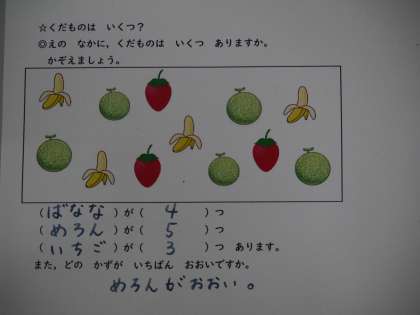 ☆くだものは いくつ?
◎えの なかに、くだものは いくつ ありますか。
かぞえましょう。
(ばなな)が( 4 )つ
(めろん)が( 5 )つ
(いちご)が( 3 )つ あります。
また、どの かずが いちばん おおいですか。
めろんがおおい。